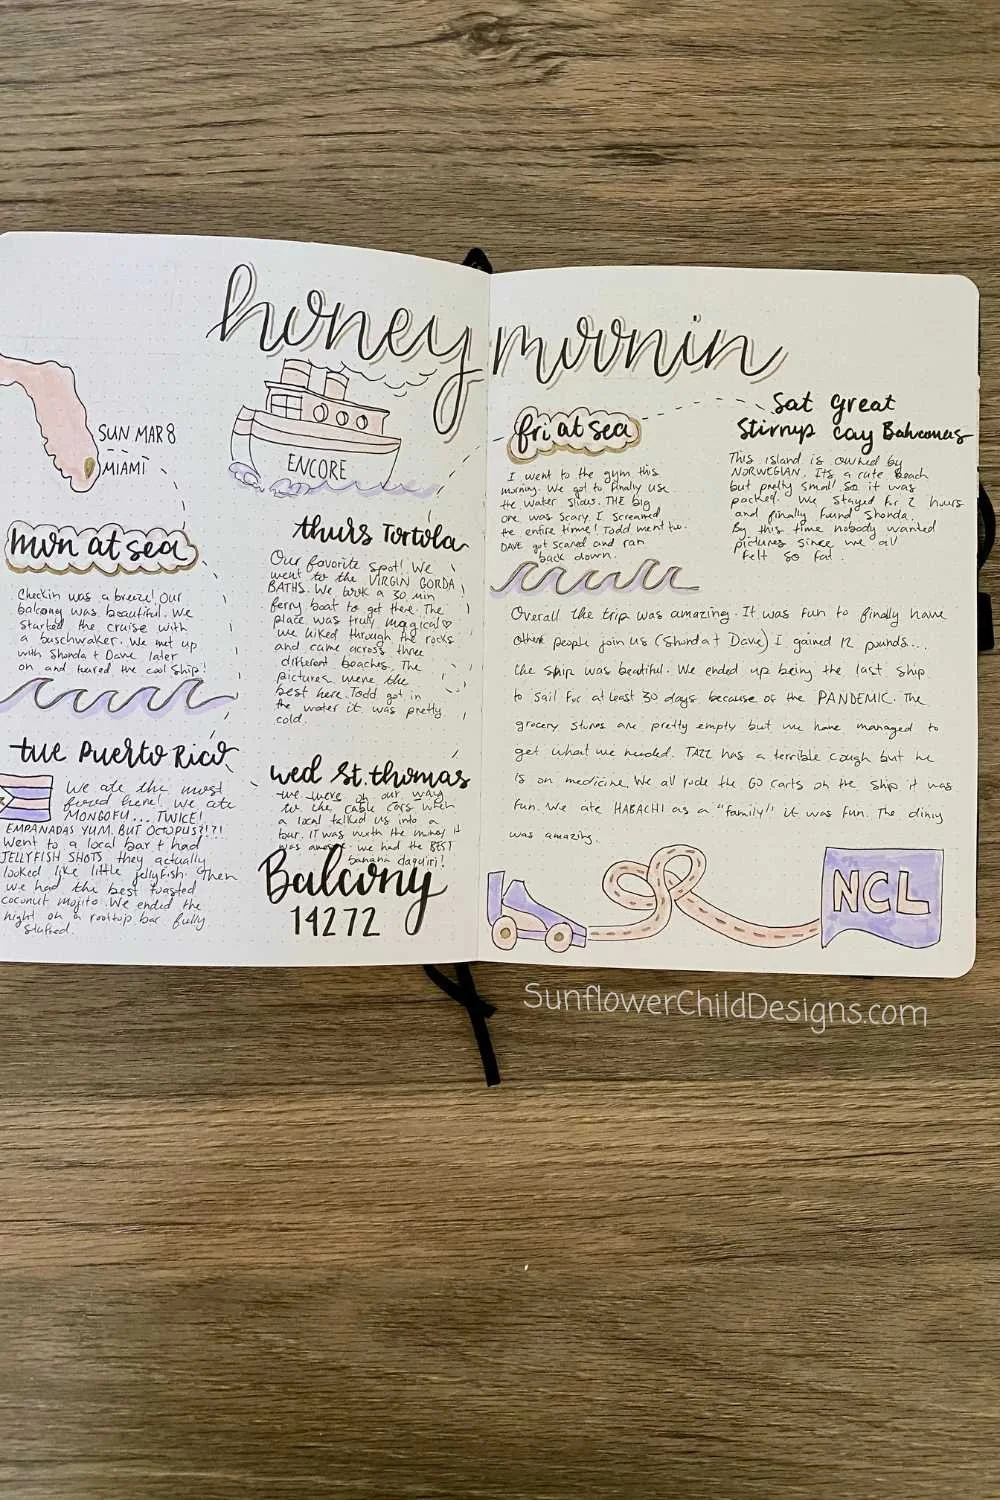 honey moonin
SUN MAR 8
MIAMI
ENCORE
mon at sea
Checkin was a breeze! Our
balcony was beautiful. We
started the cruise with
a buschwaker. We met up
with Shonda + Dave later
on and toured the cool ship!
tue Puerto Rico
We ate the most
food here! We ate
MONGOFU... TWICE!
EMPANADAS YUM. BUT OCTOPUS?!?!
Went to a local bar + had
JELLYFISH SHOTS they actually
looked like little jellyfish. Then
we had the best toasted
coconut mojito. We ended the
night on a rooftop bar fully
stuffed.
thurs Tortola
Our favorite spot! We
went to the VIRGIN GORDA
BATHS. We took a 30 min
ferry boat to get there. The
place was truly magical♡
we hiked through the rocks
and came across three
different beaches. The
pictures were the
best here. Todd got in
the water it was pretty
cold.
wed St. thomas
we were on our way
to the cable cars when
a local talked us into a
bar. IT was worth the money it
was we had the BEST
banana daquiri!
Balcony
14272
fri at sea
I went to the gym this
morning. We got to finally use
the water slides. THE big
one was scary. I screamed
the entire time! Todd went too.
DAVE got scared and ran
back down.
Sat Great
Stirrup Cay Bahamas
This island is owned by
NORWEGIAN. Its a cute beach
but pretty small so it was
packed. We stayed for 2 hours
and finally found Shonda.
By this time nobody wanted
pictures since we all
felt so fat.
Overall the trip was amazing. It was fun to finally have
other people join us (Shonda + Dave) I gained 12 pounds...
the ship was beautiful. We ended up being the last ship
to sail for at least 30 days because of the PANDEMIC. The
grocery stores are pretty empty but we have managed to
get what we needed. TAZZ has a terrible cough but he
is on medicine. We all rode the GO carts on the ship it was
fun. We ate HABACHI as a "family" it was fun. The
was amazing.
NCL
SunflowerChildDesigns.com